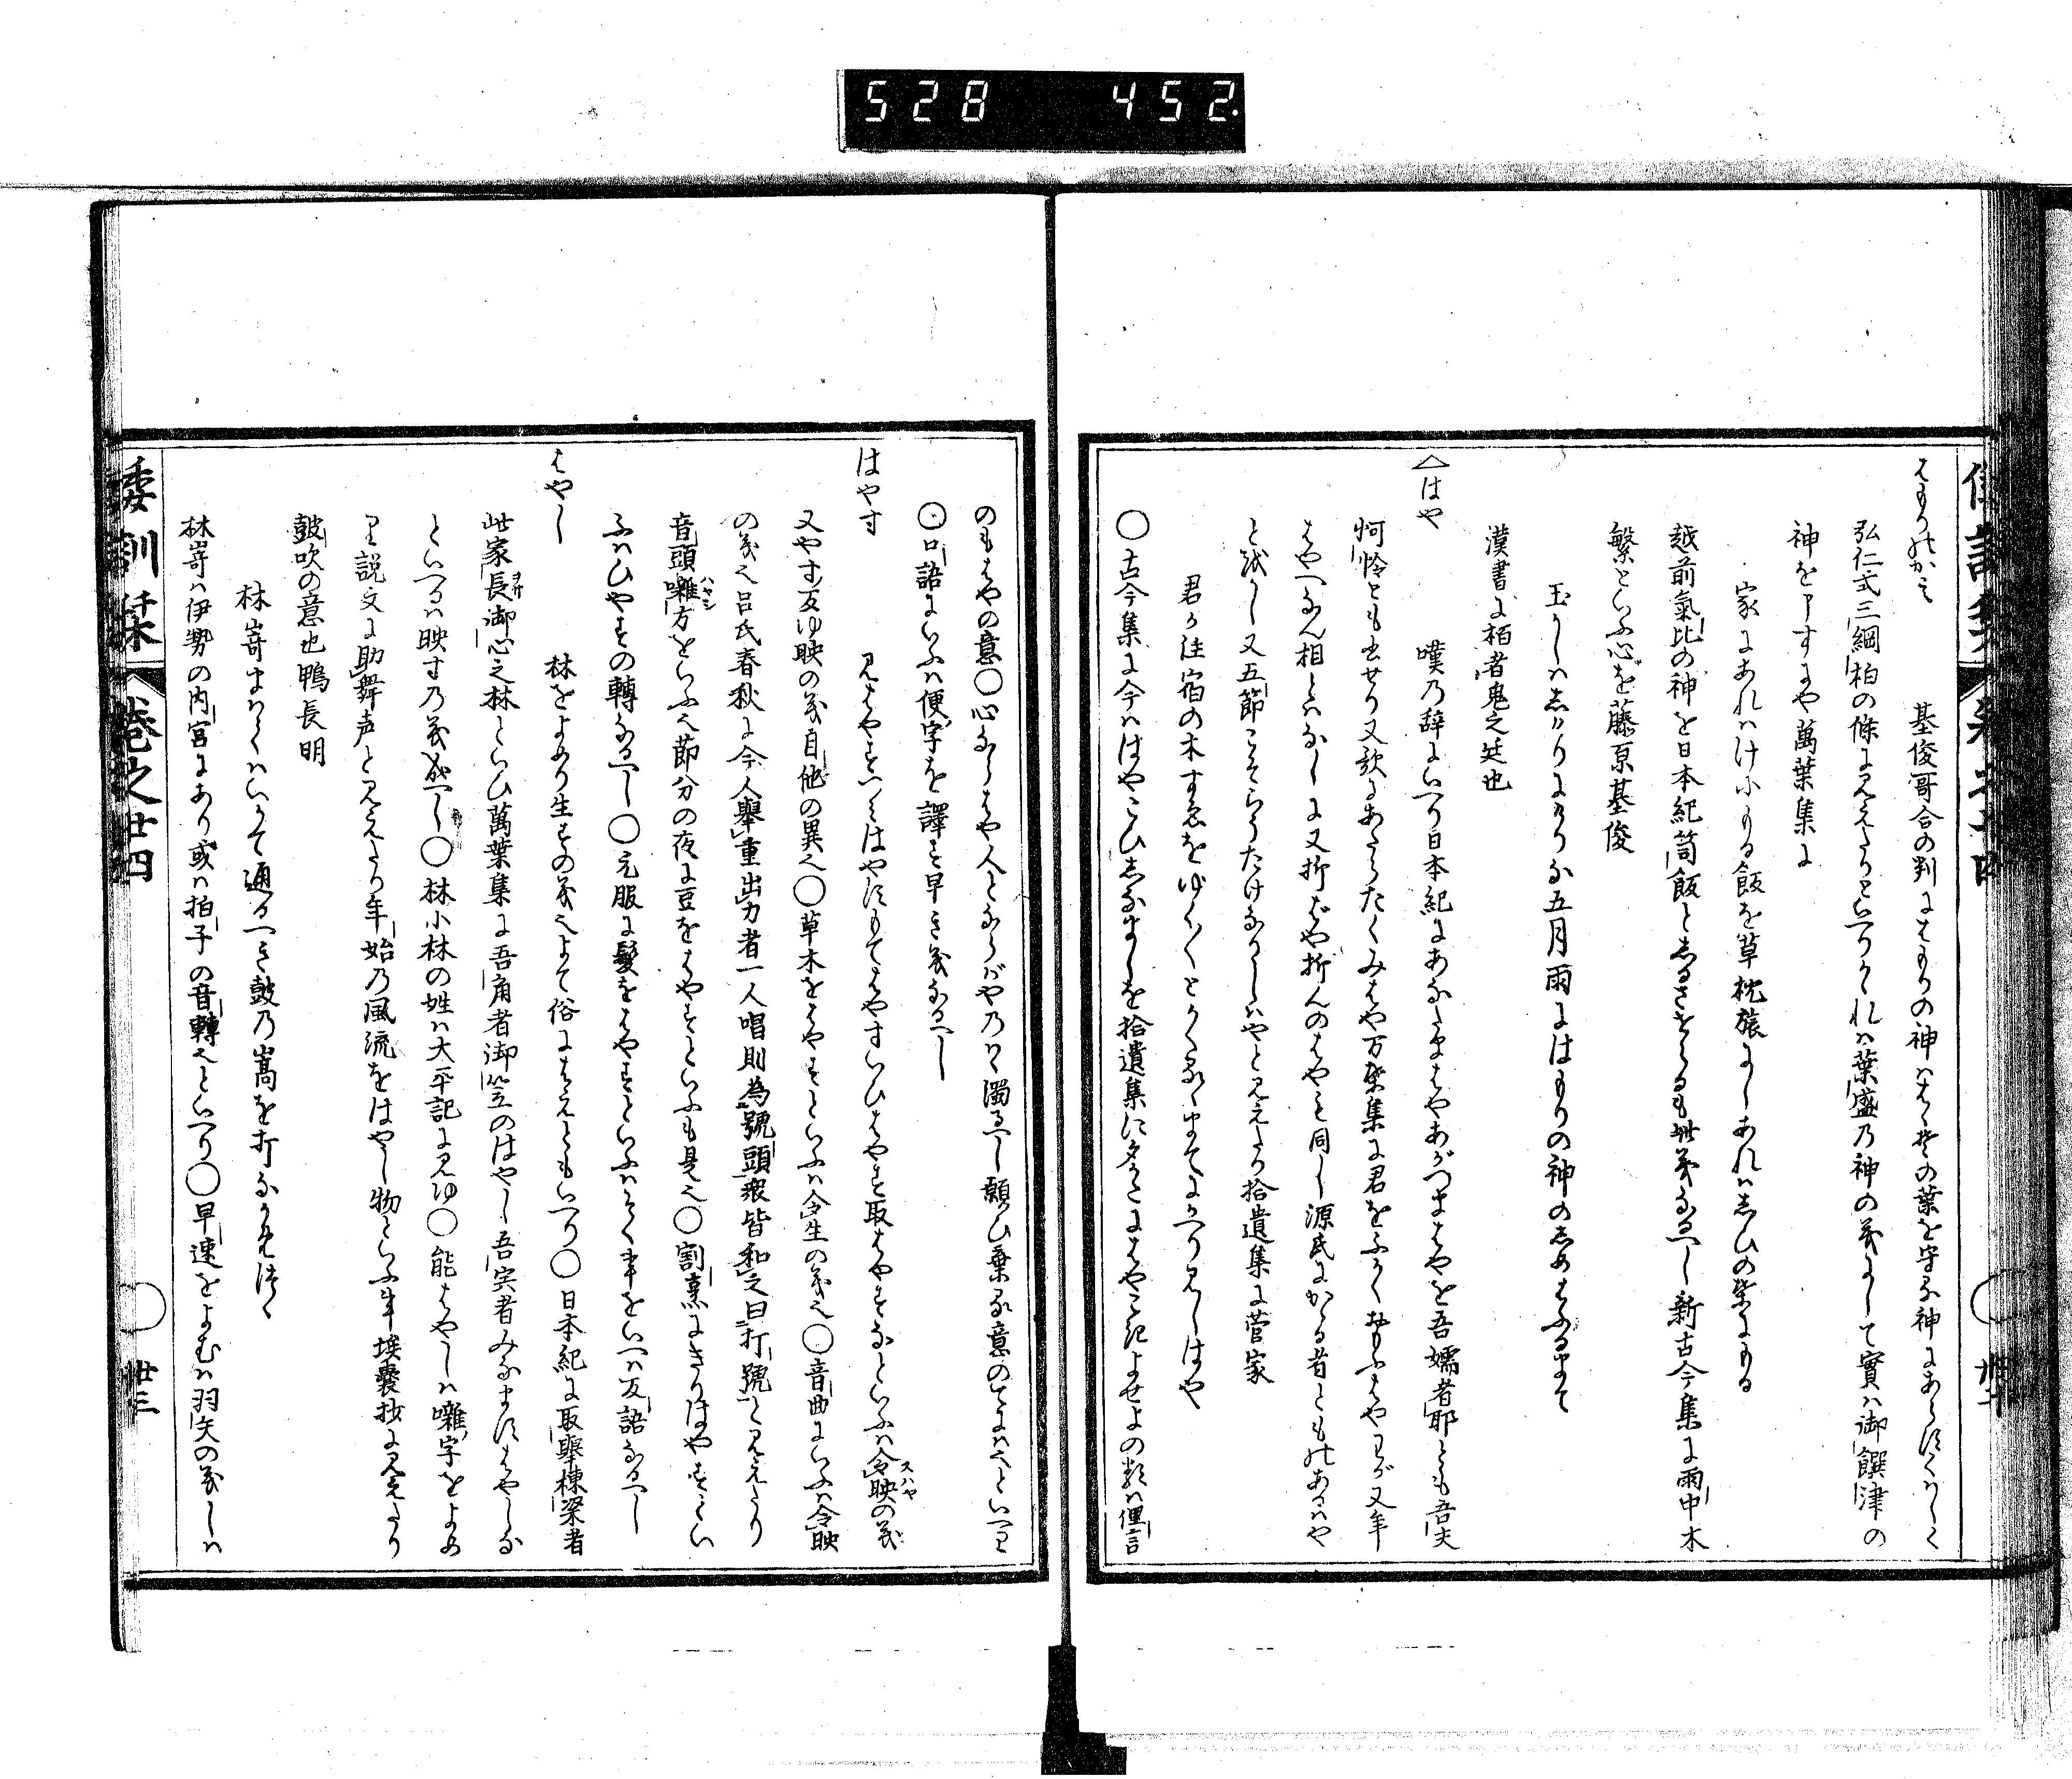 528 452.
はもりのかみ 基俊哥合の判にはもりの神はよろつの葉を守る神にあらす
弘仁式三綱柏の條に見えたりといへりされは葉盛乃神の義にして實は御饌津の
神を申すにや萬葉集に
家にあれはけにもる飯を草枕旅にしあれはしひの葉にもる
越前氣比の神を日本紀筒飯としるさせるも此義なるへし新古今集に雨中木
繁といふ心を藤原基俊
玉かしはしけりにけりな五月雨にはもりの神のしめはふるまて
漢書に栢者鬼之廷也
△はや 嘆乃辞にいへり日本紀にあなたまはやあがつまはやを吾嬬者耶とも吾夫
怜とも書せり又歌にあらたくみはや万葉集に君をふかくおもふはやわが又年
はやへなん相といふに又折ばや折んのはやも同し源氏にかゝる者とものあるはや
と或し又五節こそらうたけなりしはやと見えたり拾遺集に菅家
君か住宿の木すゑをゆく〳〵とかくるゝまてにかへり見しはや
○古今集に今ははやこひしなましを拾遺集に夕くれははやこきよせよの類は俚言
のもはやの意○心ならはや人とならばや乃はゝ濁るへし願ひ棄る意のてにはといへり
○口語にいふは便字を譯す早き義なるへし
はやす 見はやすへはやにもてはやすいひはやす取はやすなといふは令映の義
又やす反ゆ映の義自他の異也○草木をはやすといふは令生の義也○音曲にいふは令映
の義也呂氏春秋に今人擧重出力者一人唱則為號頭衆皆和之曰打號と見えたり
音頭囃方をいふ也節分の夜に豆をはやすといふも是也○割烹にきりはやすとい
ふはひやすの轉なるへし○元服に髮をはやすといふはそく事をいへは反語なるへし
はやし 林をよめり生すの義也よて俗にはえともいへり○日本紀に取擧棟梁者
此家長御心之林といひ萬葉集に吾角者御笠のはやし吾宍者みなますはやしな
といへるは映す乃義成へし○林小林の姓は大平記に見ゆ○能はやしは囃字をよめ
り説文に助舞声と見えたり年始乃風流をはやし物といふ事埃嚢抄に見えたり
鼓吹の意也鴨長明
林嵜まはくはいかて通るへき鼓乃嵩を打ながめつゝ
林嵜は伊勢の内宮にあり或は拍子の音轉也といへり○早速をよむは羽矢の義しは
倭訓栞 卷之廿四 卅三